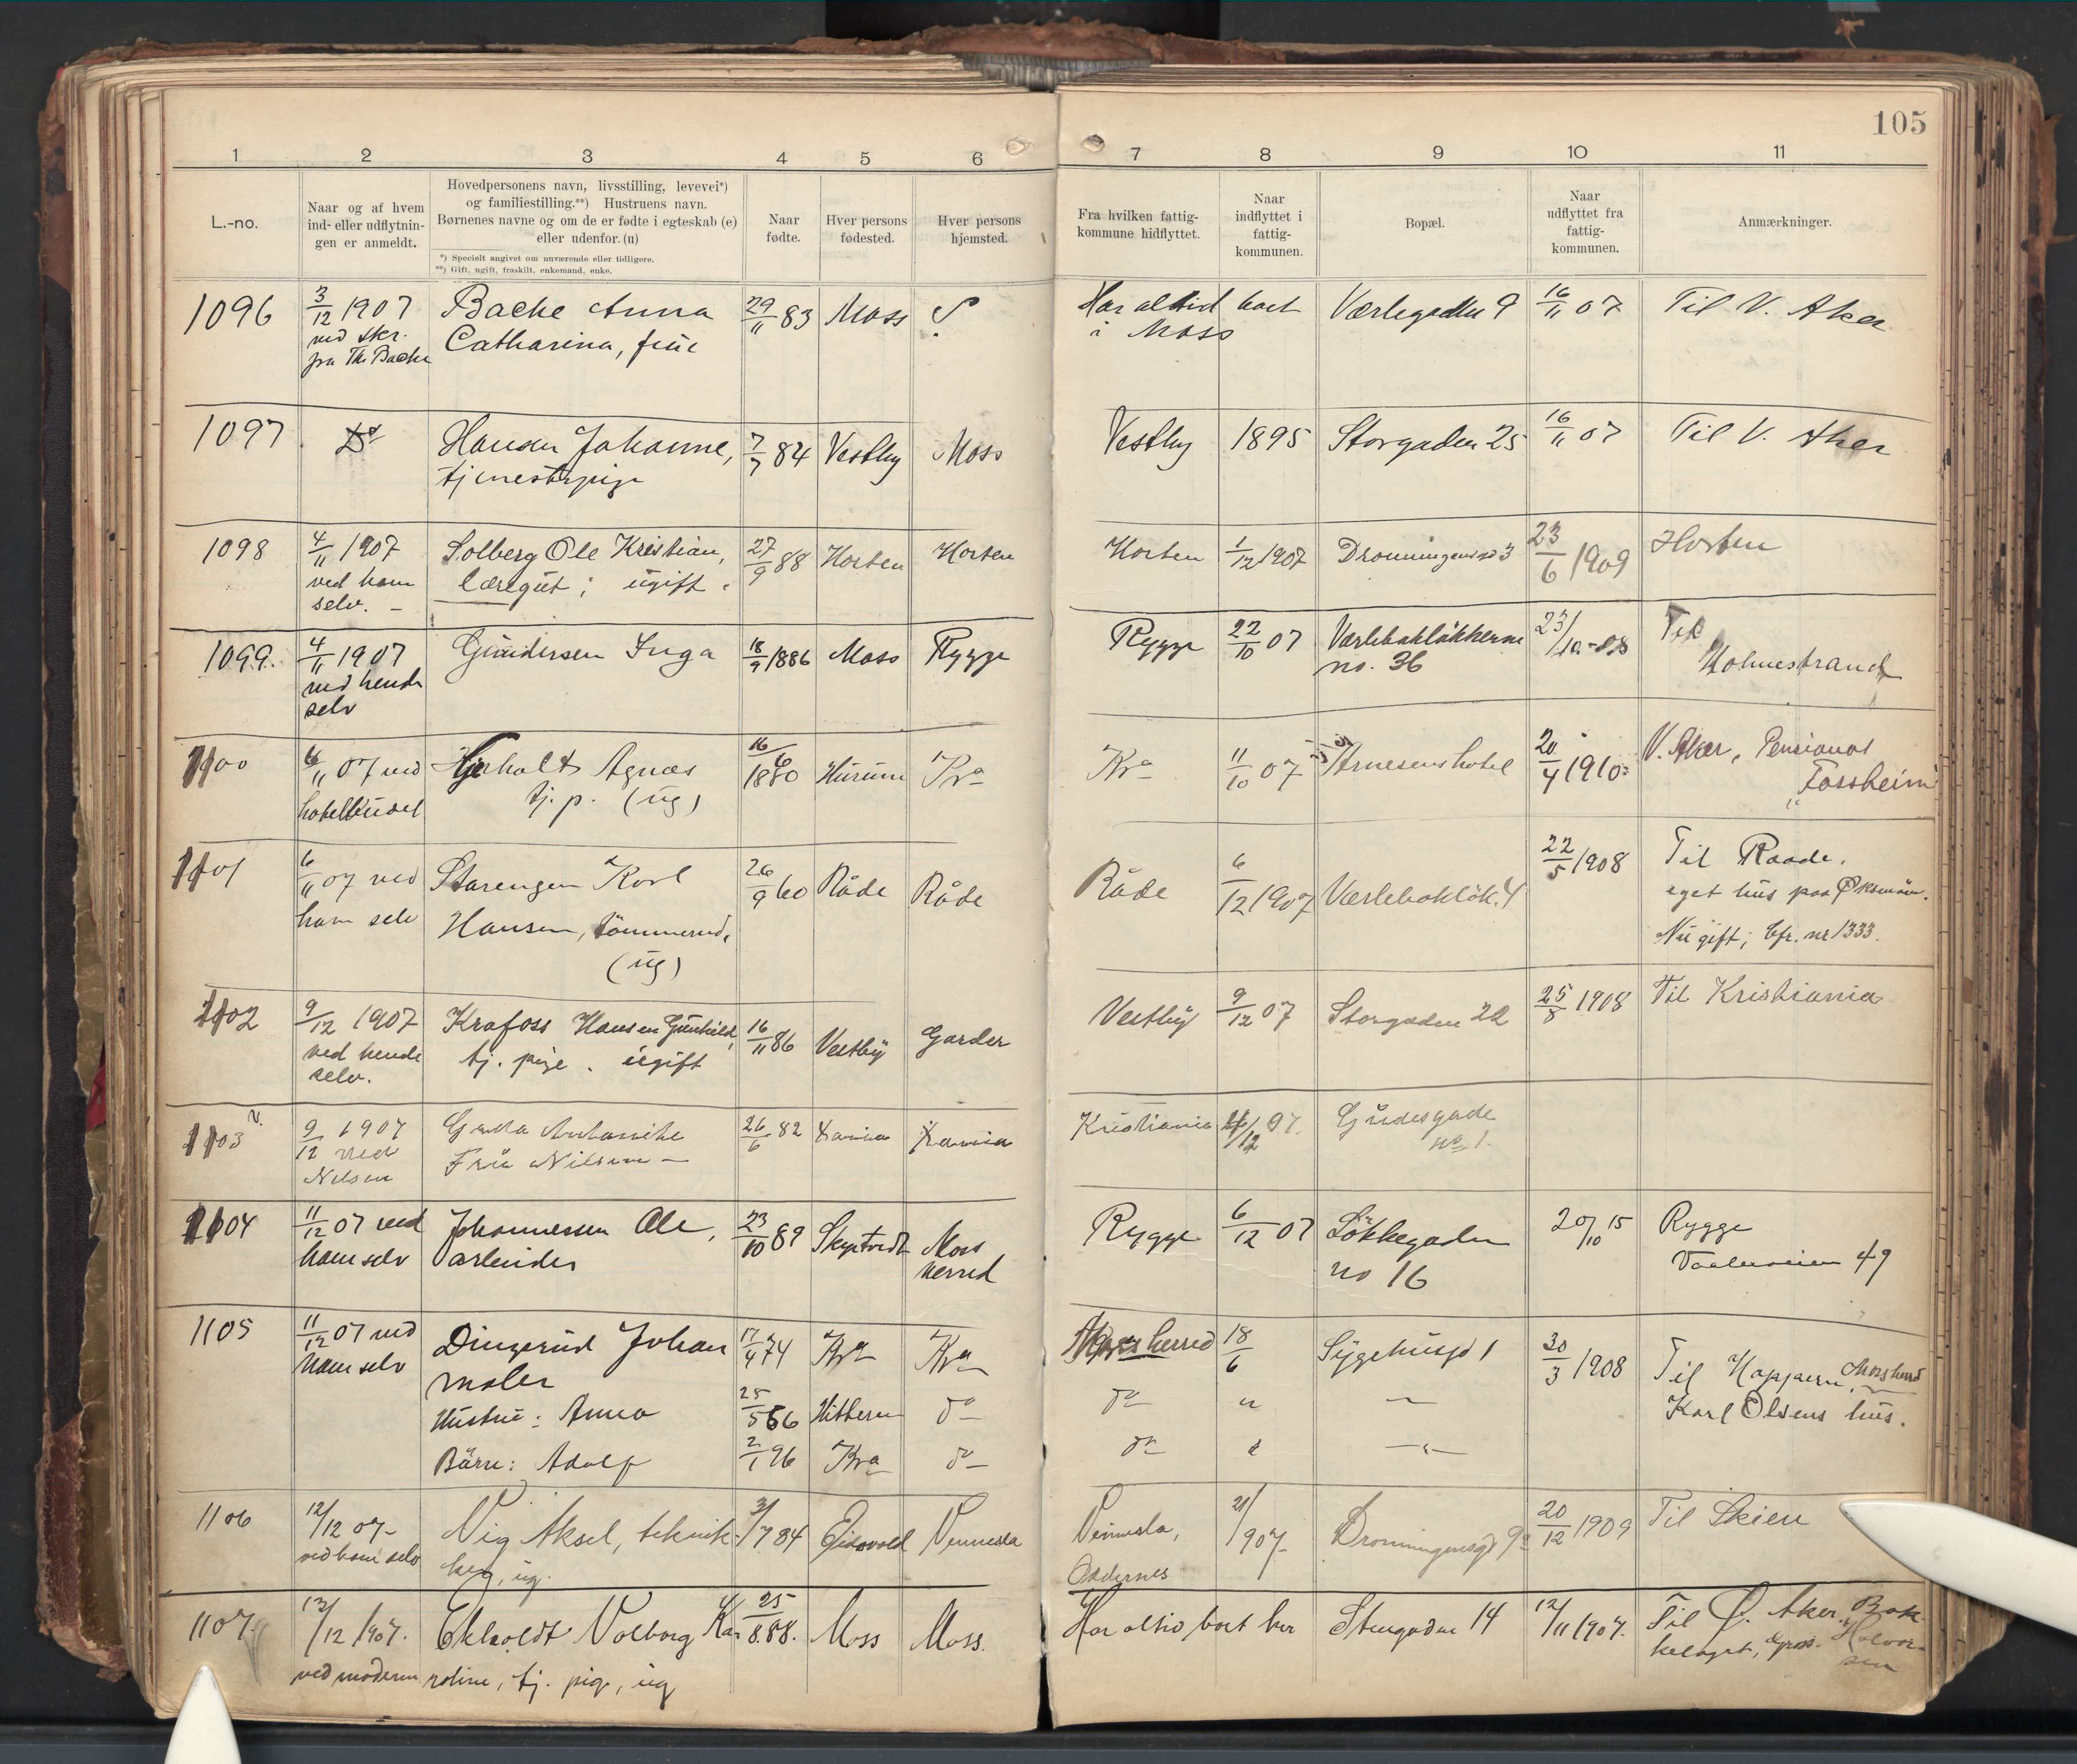 105
1 2 3 4 5 6 7 8 9 10 11
L.-no.
Naar og af hvem
ind- eller udflytnin-
gen er anmeldt.
Hovedpersonens navn, livsstilling, levevei*)
og familiestilling.**) Hustruens navn.
Børnenes navne og om de er fødte i egteskab (e)
eller udenfor. (u)
*) Specielt angivet om nuværende eller tidligere.
**) Gift, ugift, fraskilt, enkemand, enke.
Naar
fødte.
Hver persons
fødested.
Hver persons
hjemsted.
Fra hvilken fattig-
kommune hidflyttet.
Naar
indflyttet i
fattig-
kommunen.
Bopæl.
Naar
udflyttet fra
fattig-
kommunen.
Anmærkninger.
1096 3/12 1907 Bache Anna 29/11 83 Moss ? Har altid boet Værlegaden 9 16/11 07 Til V. Aker
ved skr. Catharina, i Moss
fra Th. Bache
1097 Do Hansen Johanne, 7/7 84 Vestby Moss Vestby 1895 Storgaden 25 16/11 07 Til V. Aker
tjenestepige
1098 4/11 1907 Solberg Ole Kristian, 27/9 88 Horten Horten Horten 1/12 1907 Dronningensgd 3 23/6 1909 Horten
ved ham læregut; ugift.
selv. –
1099. 4/11 1907 Gundersen Inga 18/9 1886 Moss Rygge Rygge 22/10 07 Værlebakløkkerne 23/10-08 Til
ved hende no. 36 Holmestrand
selv
1100 6/11 07 ved Agnes 16/6 1880 Hurum Kra Kra 11/10 07 Arnesens hotel 20/4 1910 V. Aker, Pensionat
tj. p. (ug) "Fossheim"
1101 6/11 07 ved Starengen Karl 26/9 60 Råde Råde Råde 6/12 1907 Værlebakløk. 4 22/5 1908 Til Raade.
ham selv Hansen, tömmermd. eget hus paa
(ug) Nu gift; cfr. nr 1333.
1102 9/12 1907 Krafoss Hansen Gunhild, 16/11 86 Vestby Garder Vestby 9/12 07 Storgaden 22 25/8 1908 Til Kristiania
ved hende tj. pige. ugift
selv.
1103 9/12 1907 Antonette 26/6 82 Kristiania /12 97. Gudesgade
ved Fru Nilsen – no 1.
Nilsen
1104 11/12 07 ved Johannessen Ole, 23/10 89 Skiptvedt Moss Rygge 6/12 07 Løkkegaden 20/10 15 Rygge
ham selv arbeider herred no 16 Vaalerveien 49
1105 11/12 07 ved Dingerud Johan 17/4 74 Kra Kra Moss herred 18/6 Sygehusgd 1 30/3 1908 Til Noppern, Moss herred
ham selv maler Karl Olsens hus.
Hustru: Anna 25/5 66 Hitteren do do " –
Børn: Adolf 2/1 96 Kra do do " –"–
1106 12/12 07– Vig Aksel, teknik- 3/7 84 Eidsvold Vennesla Vennesla, 21/ 907– Dronningensgd 9 20/12 1909 Til Skien
ved ham selv ker, ug. Oddernes
1107. 12/12 1907. Ekholdt Valborg Ka- 25/8.88. Moss Moss. Har altid boet her Stengaden 14 12/11 1907. Til Ø. Aker, Bak-
ved moderen roline, tj. pige, ug kelaget, Gross. Halvor-
sen